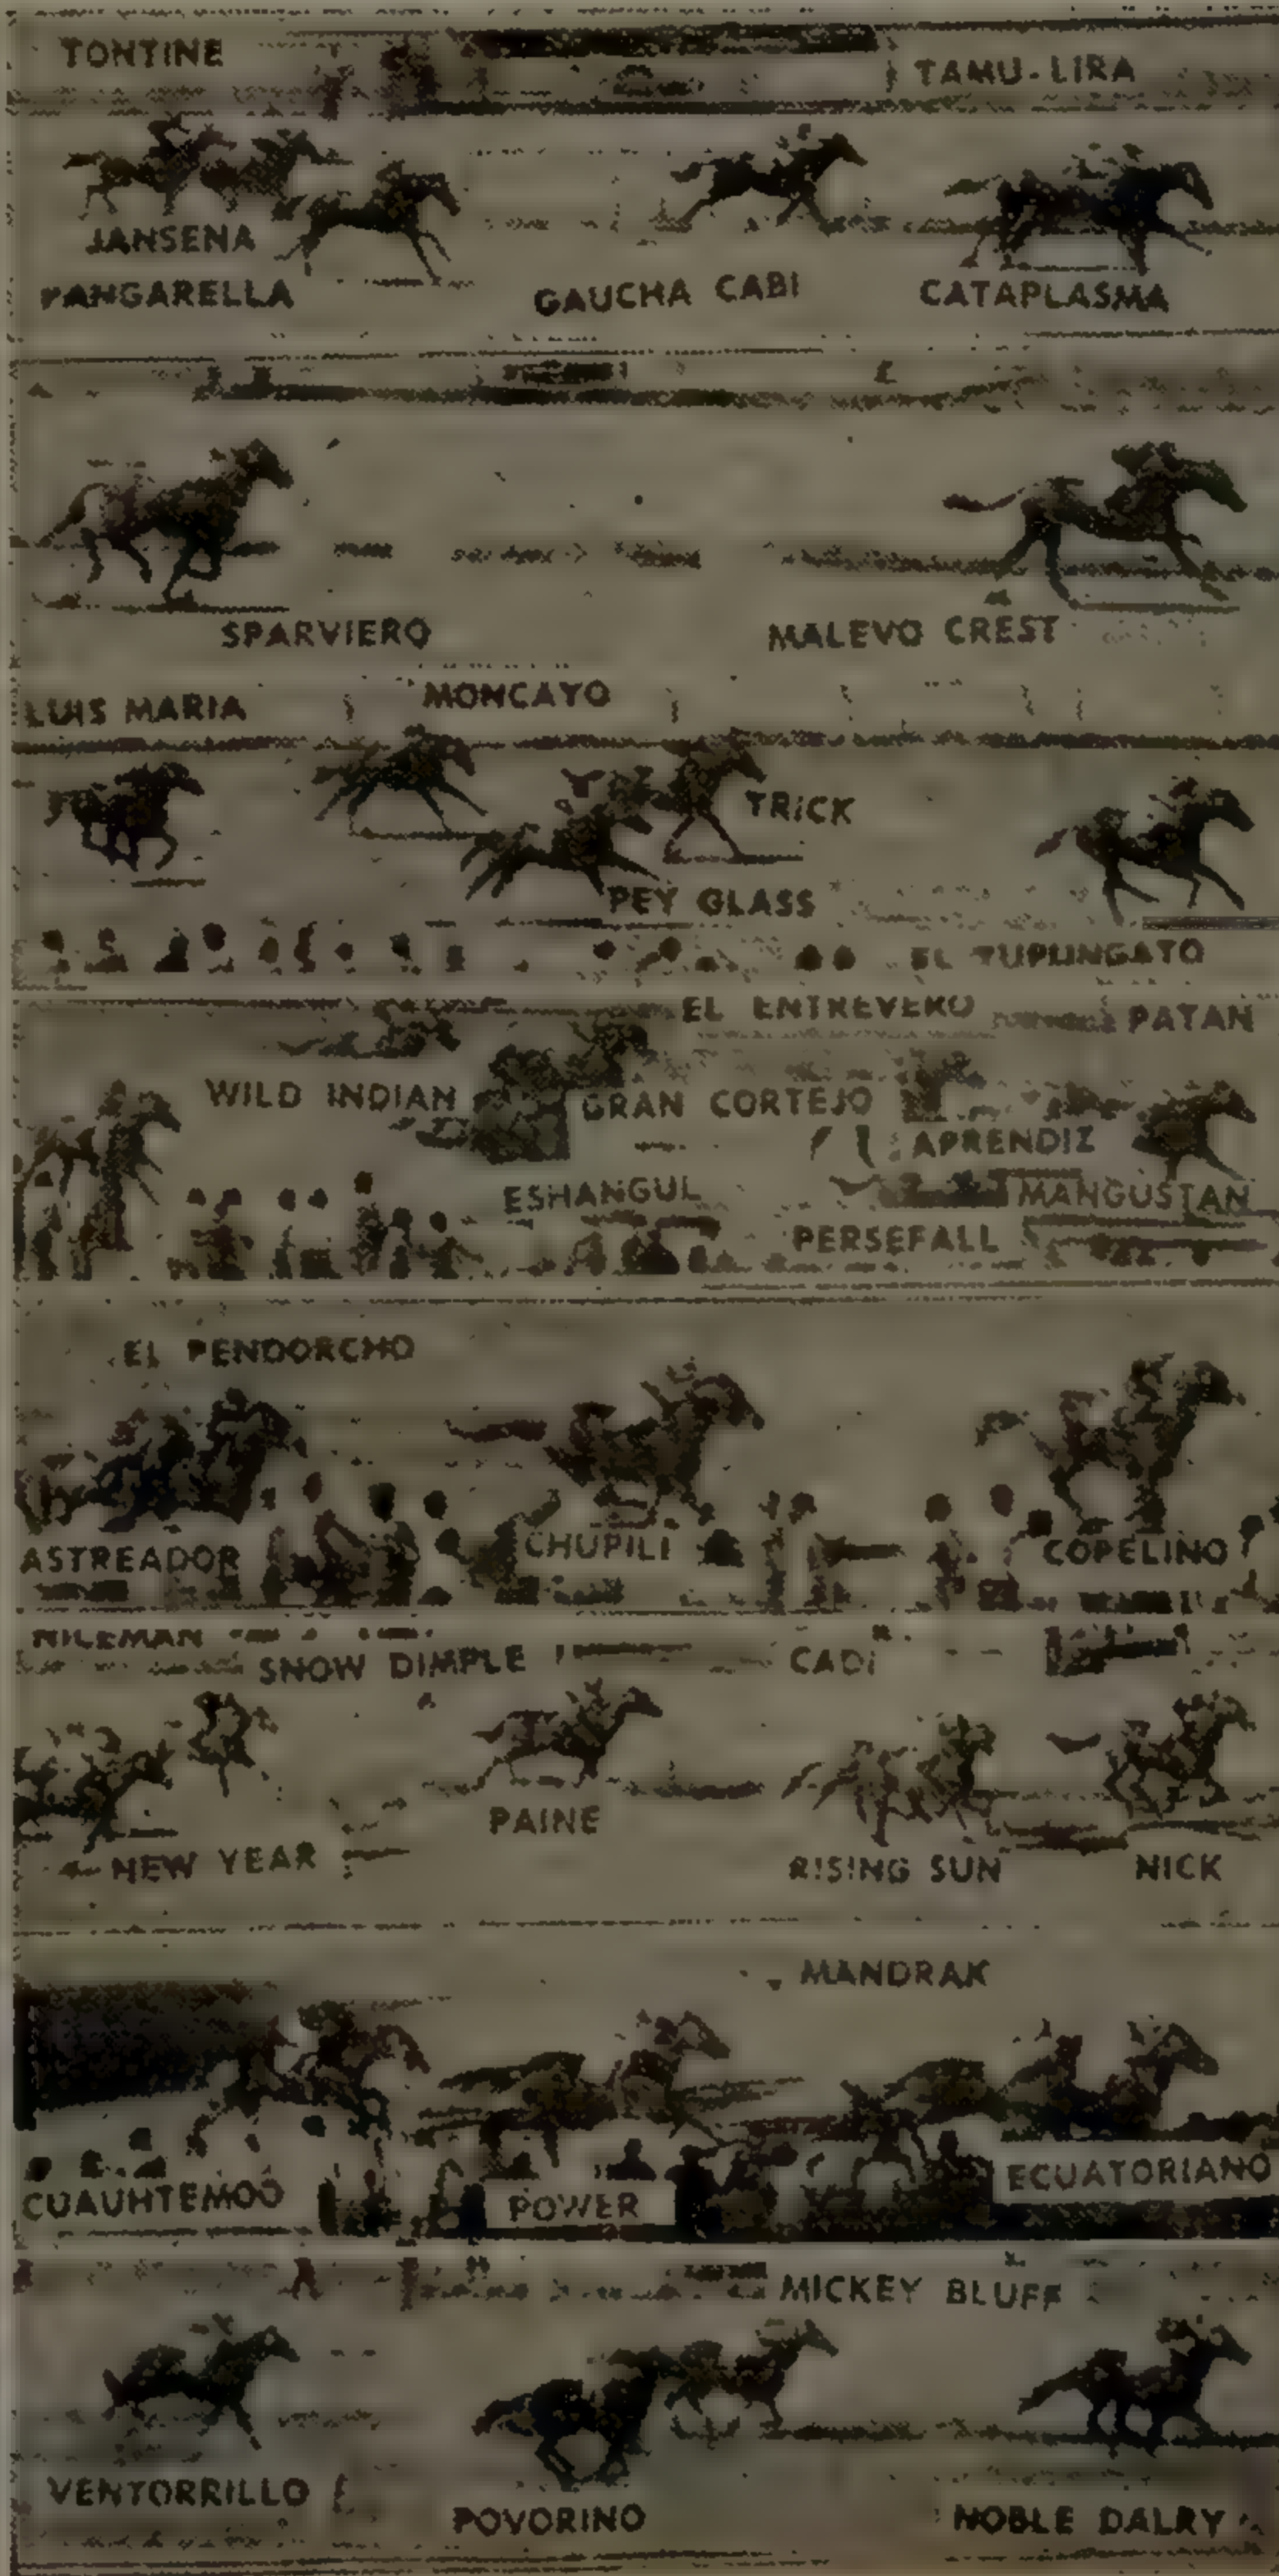 TONTINE
TAMU-LIRA
JANSENA
PANGARELLA
GAUCHA CABI
CATAPLASMA
SPARVIERO
MALEVO CREST
LUIS MARIA
MONCAYO
TRICK
PEY GLASS
EL TUPUNGATO
EL ENTREVERO
PATAN
WILD INDIAN
GRAN CORTEJO
APRENDIZ
ESHANGUL
MANGUSTAN
PERSEFALL
EL PENDORCHO
ASTREADOR
CHUPILI
COPELINO
NILEMAN
SNOW DIMPLE
CADI
PAINE
NEW YEAR
RISING SUN
NICK
MANDRAK
CUAUHTEMOC
POWER
ECUATORIANO
MICKEY BLUFF
VENTORRILLO
POVORINO
NOBLE DALRY